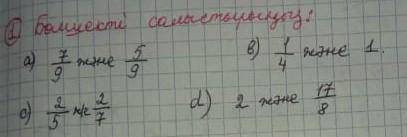 ① Бөлшекті салыстырыңыз:
a) 7/9 және 5/9 b) 1/4 және 1.
c) 2/5 ж/е 2/7 d) 2 және 17/8